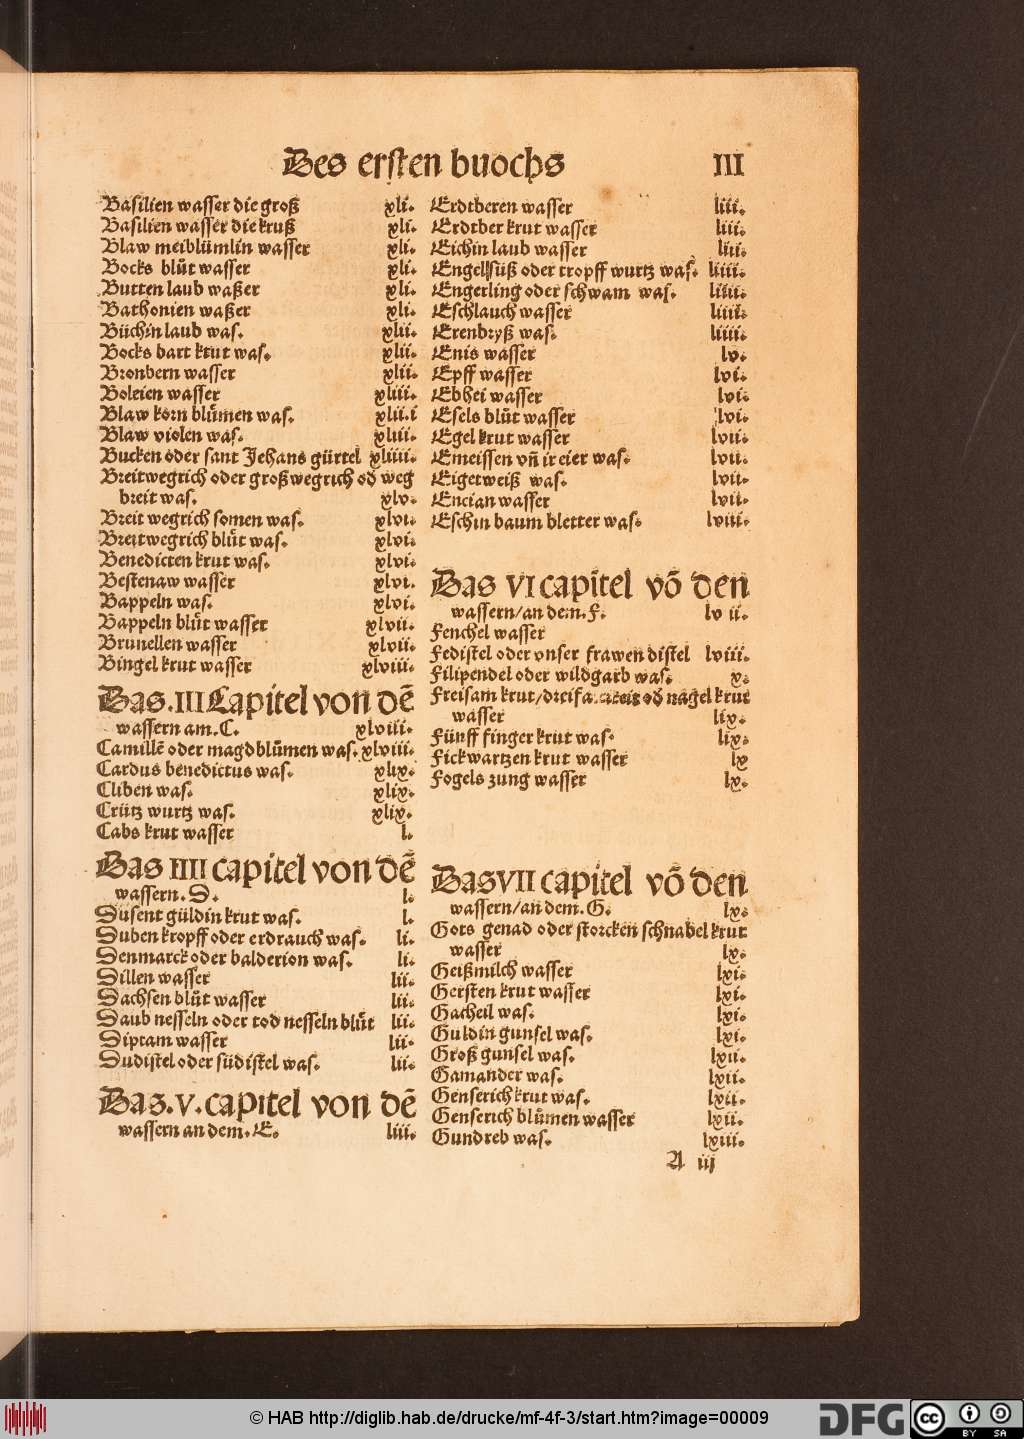 Des ersten buochs III
Basilien wasser die groß xli.
Basilien wasser die kruß xli.
Blaw meiblümlin wasser xli.
Bocks blůt wasser xli.
Butten laub waßer xli.
Bathonien waßer xli.
Büchin laub was. xlii.
Bocks bart krut was. xlii.
Bronbern wasser xlii.
Boleien wasser xliii.
Blaw korn blůmen was. xlii.i
Blaw violen was. xliii.
Bucken oder sant Jehans gürtel xliiii.
Breitwegrich oder großwegrich od weg
breit was. xlv.
Breit wegrich somen was. xlvi.
Breitwegrich blůt was. xlvi.
Benedicten krut was. xlvi.
Bestenaw wasser xlvi.
Bappeln was. xlvi.
Bappeln blůt wasser xlvii.
Brunellen wasser xlvii.
Bingel krut wasser xlviii.
Das .III Capitel von dē
wassern am .C. xlviii.
Camillē oder magdblůmen was. xlviii.
Cardus benedictus was. xlix.
Cliben was. xlix.
Crütz wurtz was. xlix.
Cabs krut wasser l.
Das IIII capitel von dē
wassern .D. l.
Dusent güldin krut was. l.
Duben kropff oder erdrauch was. li.
Denmarck oder balderion was. li.
Dillen wasser lii.
Dachsen blůt wasser lii.
Daub nesseln oder tod nesseln blůt lii.
Diptam wasser lii.
Dudistel oder südistel was. lii.
Das .V. capitel von dē
wassern an dem .E. liii.
Erdtberen wasser liii.
Erdtber krut wasser liii.
Eichin laub wasser liii.
Engelsüß oder tropff wurtz was. liiii.
Engerling oder schwam was. liiii.
Eschlauch wasser liiii.
Erenbryß was. liiii.
Enis wasser lv.
Epff wasser lvi.
Ebhei wasser lvi.
Esels blůt wasser lvi.
Egel krut wasser lvii.
Emeissen vñ ir eier was. lvii.
Eigetweiß was. lvii.
Encian wasser lvii.
Eschin baum bletter was. lviii.
Das VI capitel võ den
wassern/an dem .F. lv ii.
Fenchel wasser
Fedistel oder vnser frawen distel lviii.
Filipendel oder wildgarb was. x.
Freisam krut/ od nagel krut
wasser lix.
Fünff finger krut was. lix.
Fickwartzen krut wasser lx
Fogels zung wasser lx.
Das VII capitel võ den
wassern/an dem .G. lx.
Gots genad oder storcken schnabel krut
wasser lx.
Geißmilch wasser lxi.
Gersten krut wasser lxi.
Gacheil was. lxi.
Guldin gunsel was. lxi.
Groß gunsel was. lxii.
Gamander was. lxii.
Genserich krut was. lxii.
Genserich blůmen wasser lxii.
Gundreb was. lxiii.
A iij
© HAB http://diglib.hab.de/drucke/mf-4f-3/start.htm?image=00009
DFG
cc BY SA